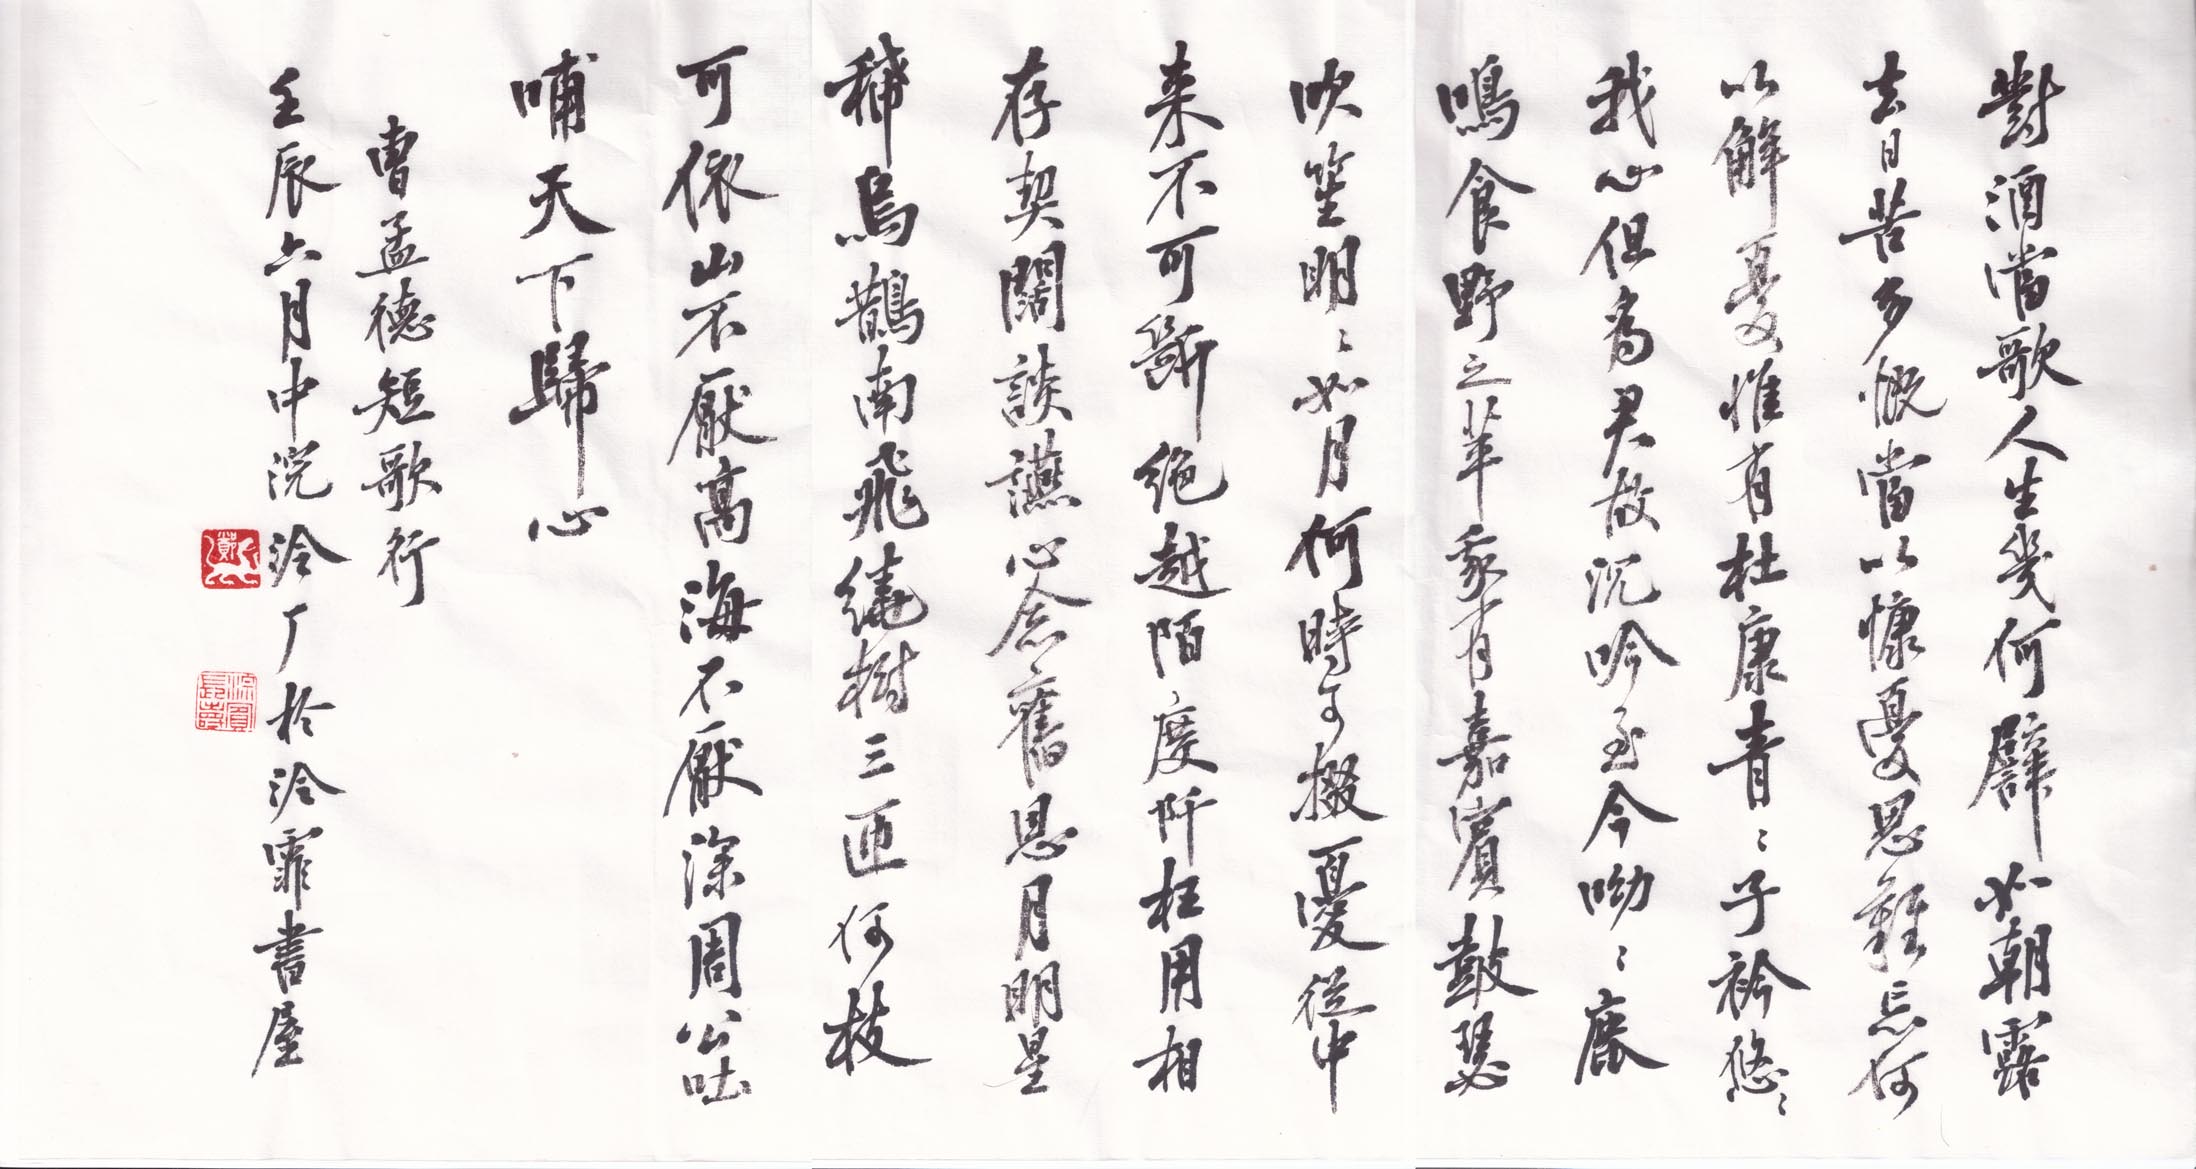 對酒當歌人生幾何譬如朝露
去日苦多慨當以慷憂思難忘何
以解憂惟有杜康青〻子衿悠〻
我心但為君故沉吟至今呦〻鹿
鳴食野之苹我有嘉賓鼓瑟
吹笙明〻如月何時可掇憂從中
来不可斷絕越陌度阡枉用相
存契闊談讌心念舊恩月明星
稀烏鵲南飛繞樹三匝何枝
可依山不厭高海不厭深周公吐
哺天下歸心
曹孟德短歌行
壬辰六月中浣泠厂於泠霏書屋